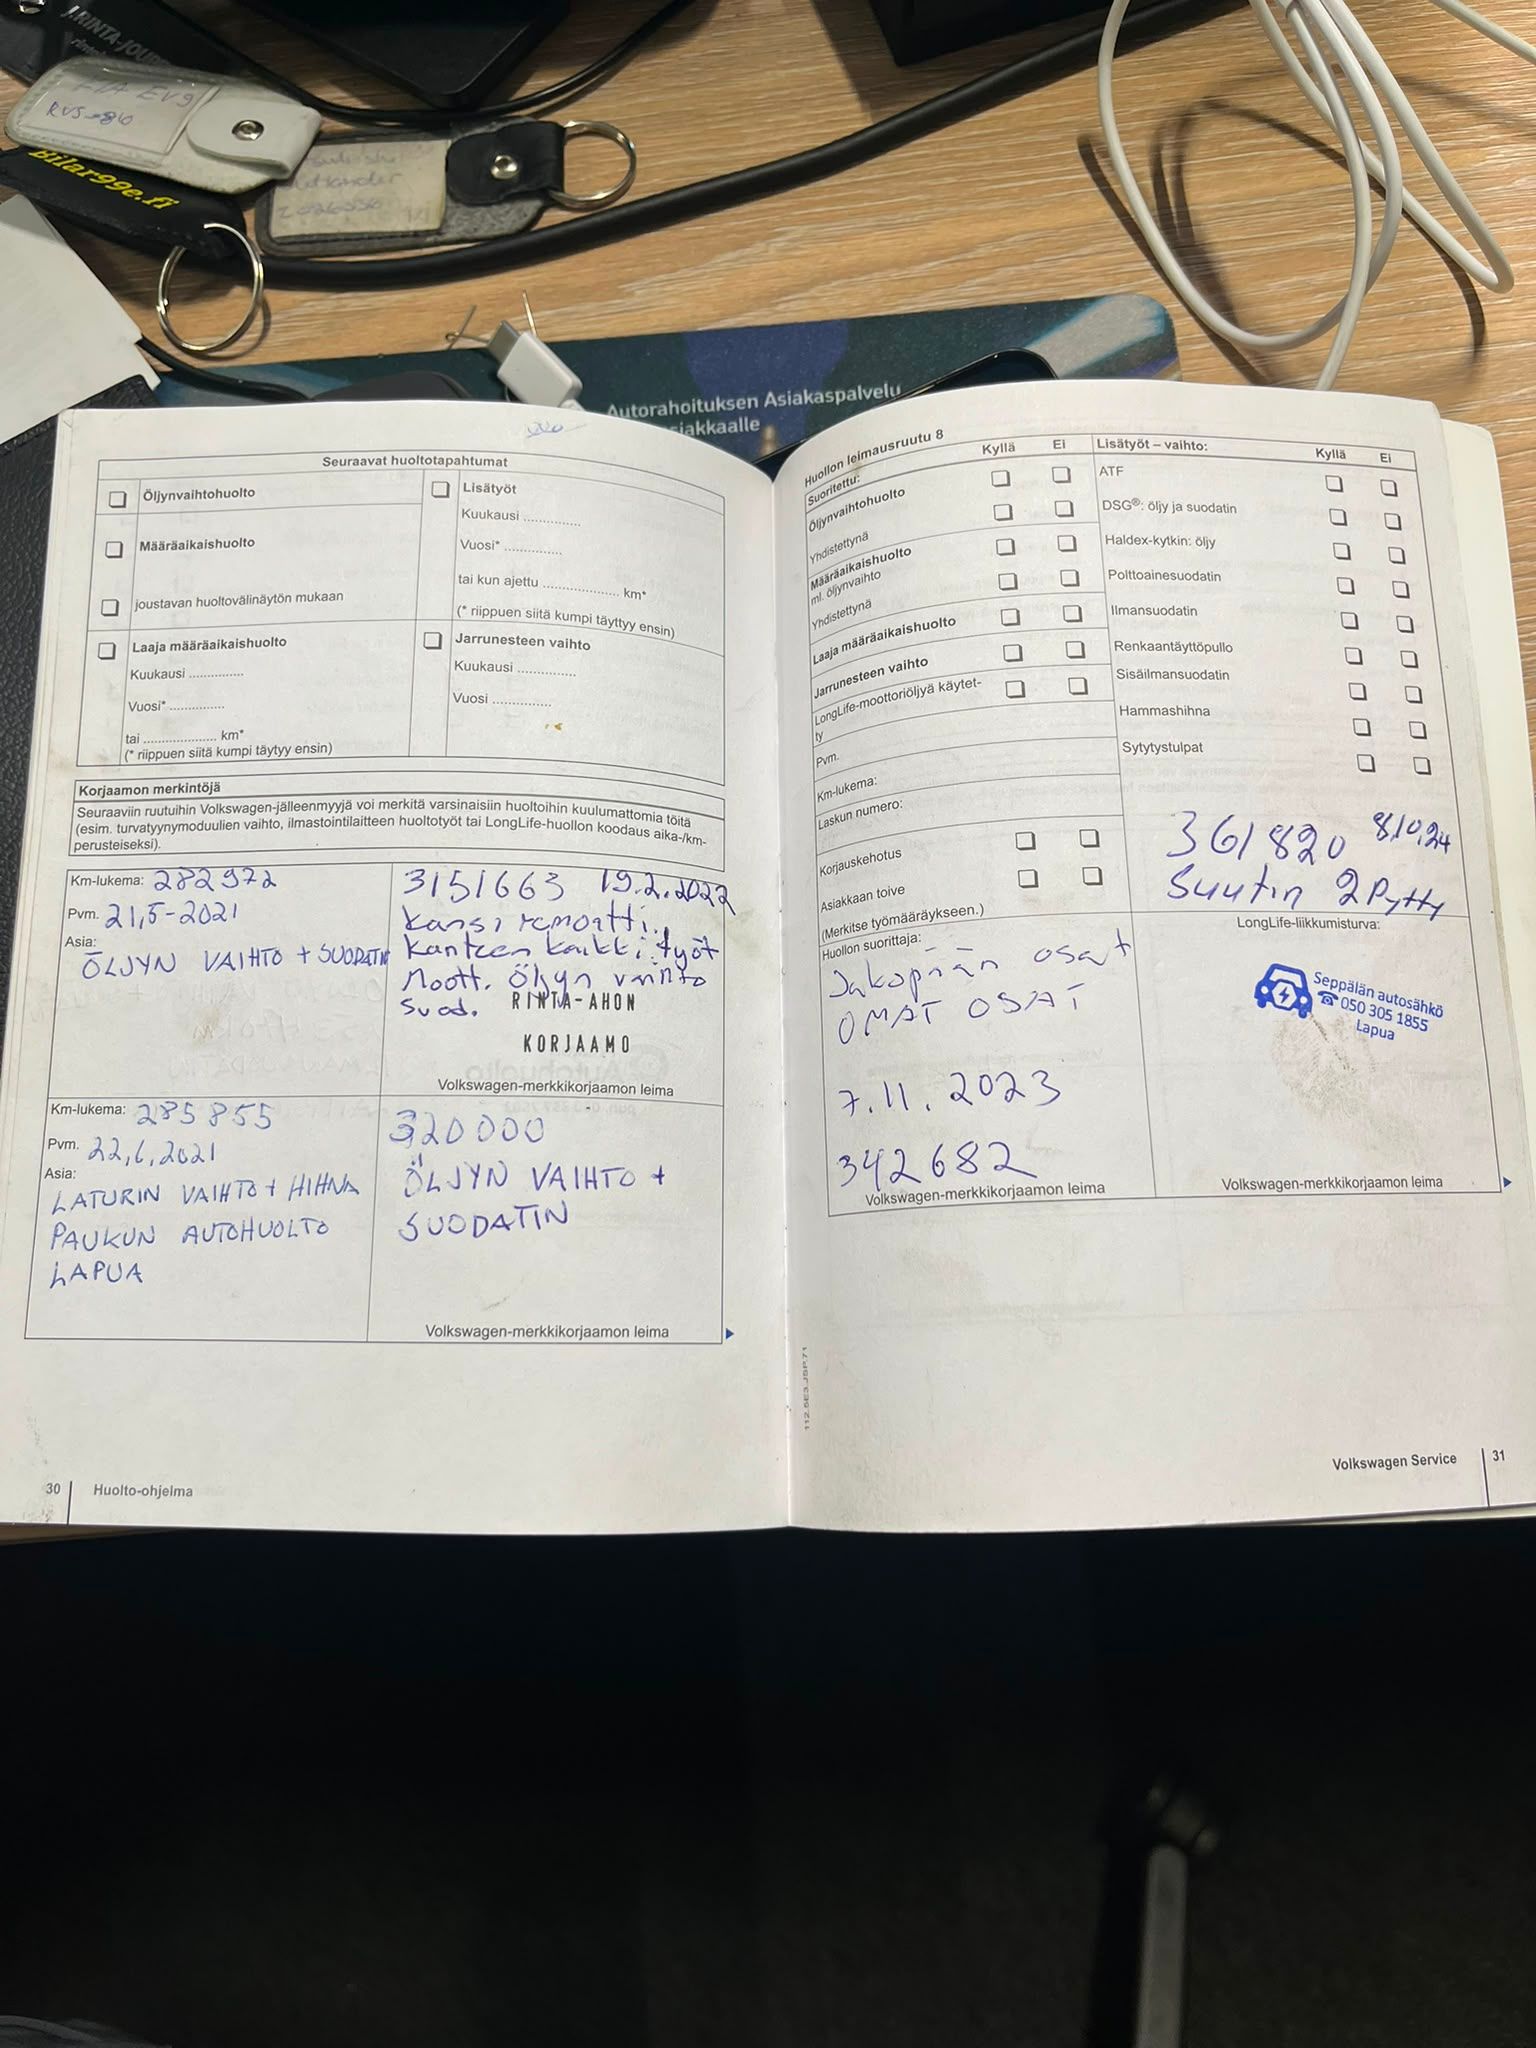 J.RINTA-JOUP
KIA EV9
RVS-86
Bilar99e.fi
Autorahoituksen Asiakaspalvelu
siakkaalle
Seuraavat huoltotapahtumat
Öljynvaihtohuolto
Määräaikaishuolto
joustavan huoltovälinäytön mukaan
Lisätyöt
Kuukausi ..............
Vuosi* ..............
tai kun ajettu ................... km*
(* riippuen siitä kumpi täyttyy ensin)
Laaja määräaikaishuolto
Kuukausi ..............
Vuosi* ..............
tai ................... km*
(* riippuen siitä kumpi täytyy ensin)
Jarrunesteen vaihto
Kuukausi ..............
Vuosi ..............
Korjaamon merkintöjä
Seuraaviin ruutuihin Volkswagen-jälleenmyyjä voi merkitä varsinaisiin huoltoihin kuulumattomia töitä
(esim. turvatyynymoduulien vaihto, ilmastointilaitteen huoltotyöt tai LongLife-huollon koodaus aika-/km-
perusteiseksi).
Km-lukema: 282972
Pvm. 21,5-2021
Asia:
ÖLJYN VAIHTO + SUODATIN
3151663 19.2.2022
Kansi remontti.
Kanteen kaikki työt
Moott. Öljyn vaihto
Suod.
RINTA-AHON
KORJAAMO
Volkswagen-merkkikorjaamon leima
Km-lukema: 285855
Pvm. 22,6,2021
Asia:
LATURIN VAIHTO + HIHNA
PAUKUN AUTOHUOLTO
LAPUA
320000
ÖLJYN VAIHTO +
SUODATIN
Volkswagen-merkkikorjaamon leima
30 Huolto-ohjelma
Huollon leimausruutu 8
Suoritettu:
Kyllä Ei
Öljynvaihtohuolto
Yhdistettynä
Määräaikaishuolto
ml. öljynvaihto
Yhdistettynä
Laaja määräaikaishuolto
Jarrunesteen vaihto
LongLife-moottoriöljyä käytet-
ty
Pvm.
Km-lukema:
Laskun numero:
Korjauskehotus
Asiakkaan toive
(Merkitse työmääräykseen.)
Lisätyöt – vaihto: Kyllä Ei
ATF
DSG®: öljy ja suodatin
Haldex-kytkin: öljy
Polttoainesuodatin
Ilmansuodatin
Renkaantäyttöpullo
Sisäilmansuodatin
Hammashihna
Sytytystulpat
361820 8,10,24
Suutin 2 Pytty
Huollon suorittaja:
Jakopään osat
OMAT OSAT
7.11.2023
342682
Volkswagen-merkkikorjaamon leima
LongLife-liikkumisturva:
Seppälän autosähkö
☎ 050 305 1855
Lapua
Volkswagen-merkkikorjaamon leima
112.5E3.JSP.71
Volkswagen Service 31